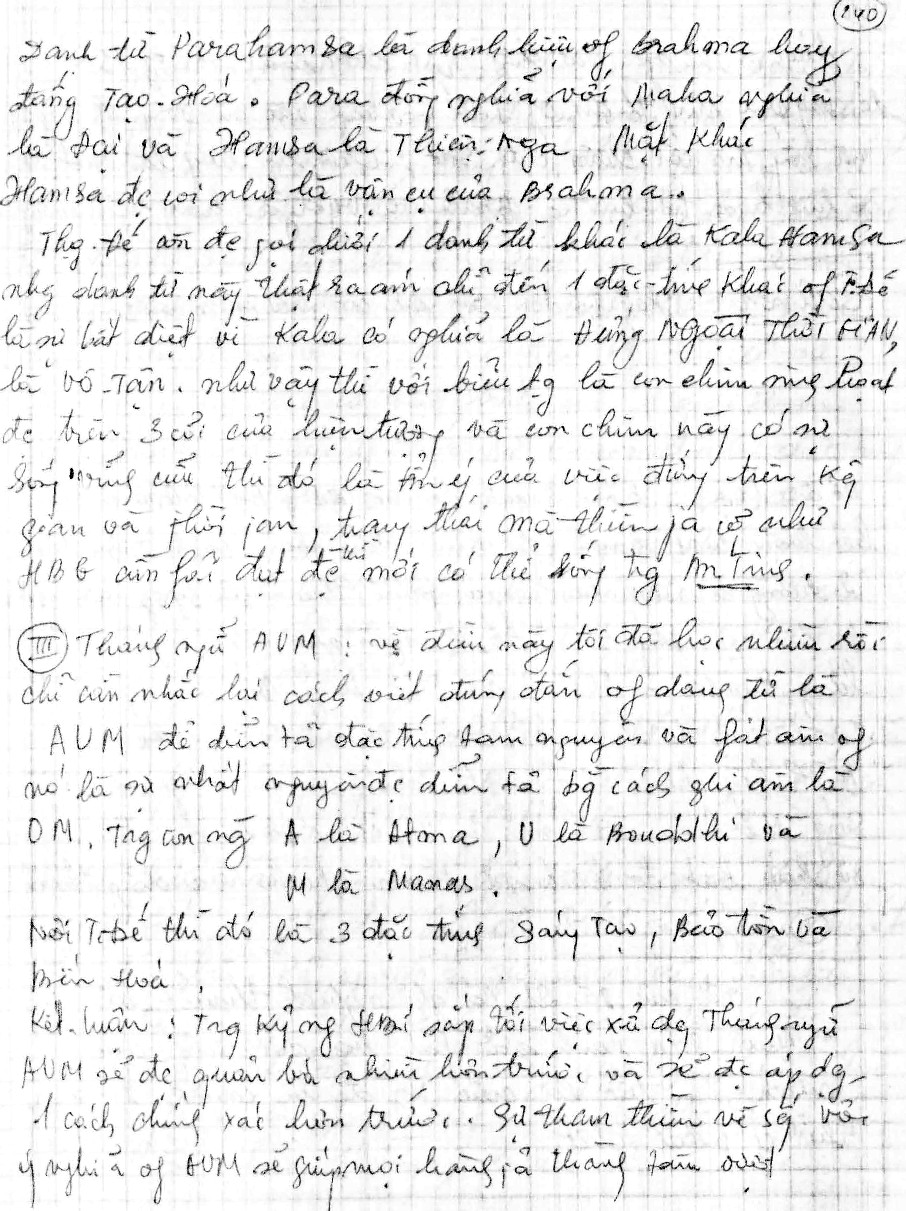 240
Danh từ Parahamsa là danh hiệu of Brahma hay
đấng Tạo-Hoá. Para đồng nghĩa với Maha nghĩa
là Đại và Hamsa là Thiên-Nga Mặt Khác
Hamsa đc coi như là vận cụ của Brahma.
Thg-Đế còn đc gọi dưới 1 danh từ khác là Kala Hamsa
nhg danh từ này thật ra ám chỉ đến 1 đặc-tính Khác of T.Đế
là sự bất diệt vì Kala có nghĩa là Đứng NGoài Thời GiAN,
là vô-Tận. như vậy thì với biểu tg là con chim
đc trên 3 cõi của hiện tượng và con chim này có sự
Sống thì đó là ẩn ý của việc đứng trên Kg
gian và thời jan, trạng thái mà thiền ja như
cần fải đạt đc thì mới có thể sống tg
III Tháng ngữ AUM : về điều này tôi đã học nhiều rồi
chỉ cần nhắc lại cách viết đúng đắn of dang từ là
AUM để diễn tả đặc tính tam nguyên và fát âm of
nó là sự nhất nguyên đc diễn tả bg cách ghi âm là
OM. Trg con ng A là Atma, U là Bouddhi và
M là Manas.
Nơi T-Đế thì đó là 3 đặc tính Sáng Tạo, Bảo tồn và
Biến Hoá.
Kết-luận : Trg Kỷ ng sắp tới việc xử dg Tháng ngữ
AUM sẽ đc quản bá nhiều hơn trước và sẽ đc áp dg
1 cách chíng xác hơn trước. Sự tham thiền về
ý nghĩa of AUM sẽ giúp mọi hàng jả